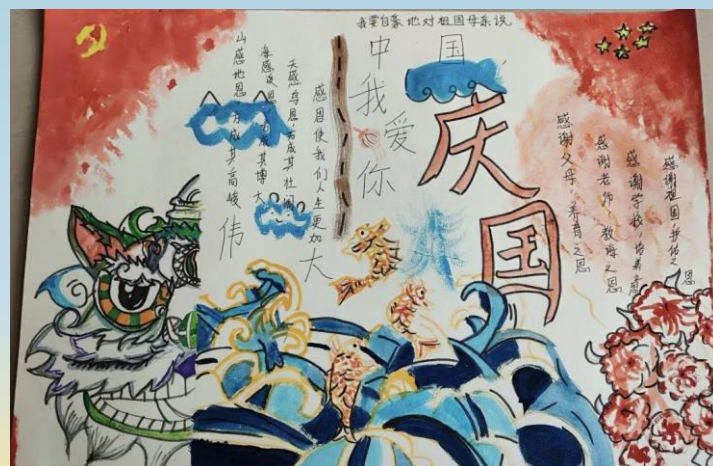 我要自豪地对祖国母亲说
中国
我爱你
国庆
感谢祖国
之恩
感谢学校，培养之恩
感谢老师，教诲之恩
感谢父母，养育之恩
感恩使我们人生更加
伟大
天感鸟恩，方成其壮阔
海感
恩
方成其博大
山感地恩，方成其高峻